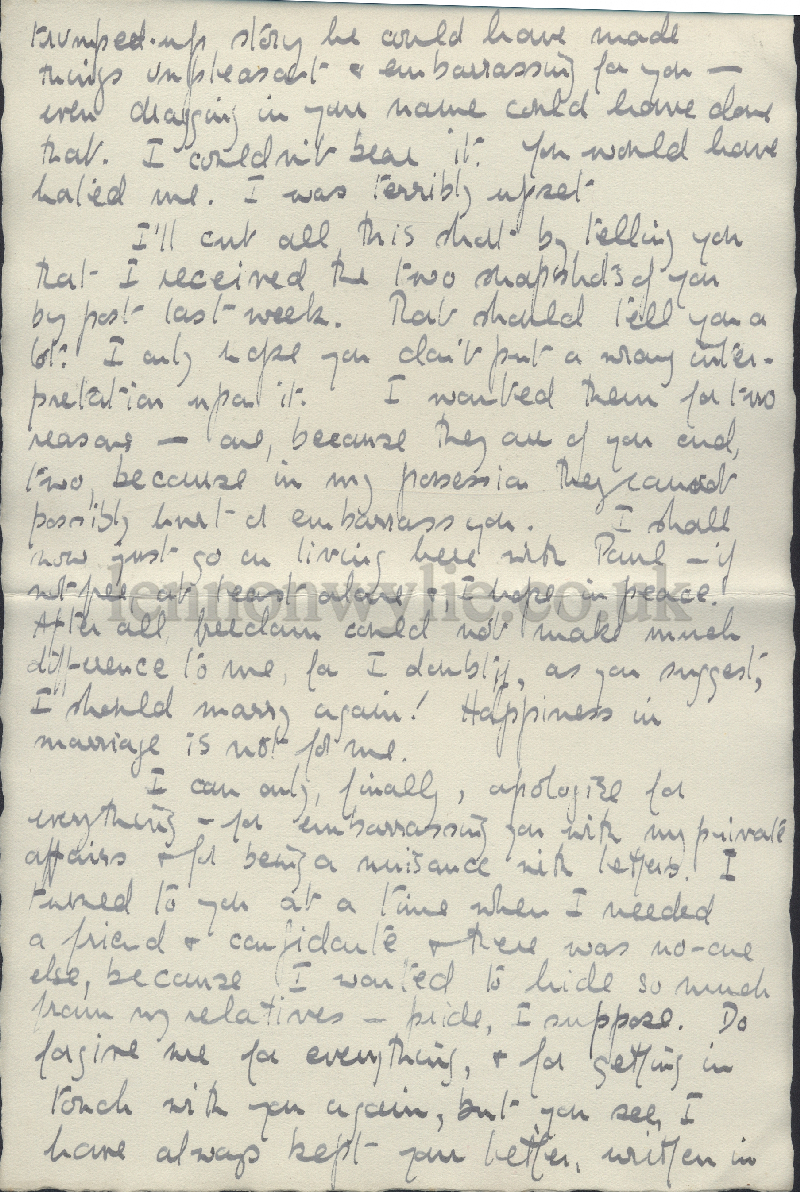 trumped-up story he could have made
things unpleasant & embarrassing for you —
even dragging in your name could have done
that. I couldn't bear it. You would have
hated me. I was terribly upset
I'll cut all this short by telling you
that I received the two snapshots of you
by post last week. That should tell you a
lot. I only hope you don't put a wrong inter-
pretation upon it. I wanted them for two
reasons — one, because they are of you and,
two, because in my possession they cannot
possibly hurt or embarrass you. I shall
now just go on living here with Paul — if
not free at least alone &, I hope, in peace.
After all, freedom could not make much
difference to me, for I doubt if, as you suggest,
I should marry again! Happiness in
marriage is not for me.
I can only, finally, apologize for
everything – for embarrassing you with my private
affairs & for being a nuisance with letters. I
turned to you at a time when I needed
a friend & confidante & there was no-one
else, because I wanted to hide so much
from my relatives — pride, I suppose. Do
forgive me for everything, & for getting in
touch with you again, but you see, I
have always kept your letter, written in
lennonwylie.co.uk